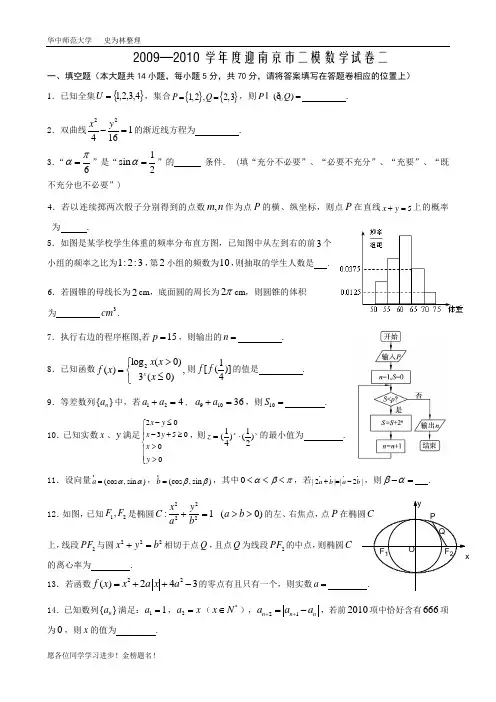 华中师范大学 史为林整理
2009—2010 学年度迎南京市二模数学试卷二
一、填空题(本大题共14小题,每小题5分,共70分,请将答案填写在答题卷相应的位置上)
1.已知全集U={1,2,3,4},集合P={1,2},Q={2,3},则P I (ðUQ)= .
2.双曲线x²/4−y²/16=1的渐近线方程为 .
3.“α=π/6”是“sinα=1/2”的 条件.(填“充分不必要”、“必要不充分”、“充要”、“既
不充分也不必要”)
4.若以连续掷两次骰子分别得到的点数m,n作为点P的横、纵坐标,则点P在直线x+y=5上的概率
为 .
5.如图是某学校学生体重的频率分布直方图,已知图中从左到右的前3个
小组的频率之比为1:2:3,第2小组的频数为10,则抽取的学生人数是 .
频率
组距
0.0375
0.0125
50 55 60 65 70 75 体重
6.若圆锥的母线长为2cm,底面圆的周长为2πcm,则圆锥的体积
为 cm³.
7.执行右边的程序框图,若p=15,则输出的n= .
开始
输入P
n=1,S=0
S<p?
否
是
S=S+2ⁿ
输出n
n=n+1
结束
8.已知函数f(x)={log₂x(x>0) 3ˣ(x≤0),则f[f(1/4)]的值是 .
9.等差数列{aₙ}中,若a₁+a₂=4,a₉+a₁₀=36,则S₁₀= .
10.已知实数x、y满足{2x−y≤0 x−3y+5≥0 x>0 y>0,则z=(1/4)ˣ·(1/2)ʸ的最小值为 .
11.设向量a=(cosα,sinα),b=(cosβ,sinβ),其中0<α<β<π,若|2a+b|=|a−2b|,则β−α= .
12.如图,已知F₁,F₂是椭圆C:x²/a²+y²/b²=1 (a>b>0)的左、右焦点,点P在椭圆C
上,线段PF₂与圆x²+y²=b²相切于点Q,且点Q为线段PF₂的中点,则椭圆C
的离心率为 .
y
P
Q
F₁
O
F₂
x
13.若函数f(x)=x²+2a|x|+4a²−3的零点有且只有一个,则实数a= .
14.已知数列{aₙ}满足:a₁=1,a₂=x(x∈N*),aₙ₊₂=|aₙ₊₁−aₙ|,若前2010项中恰好含有666项
为0,则x的值为 .
愿各位同学学习进步!金榜题名!